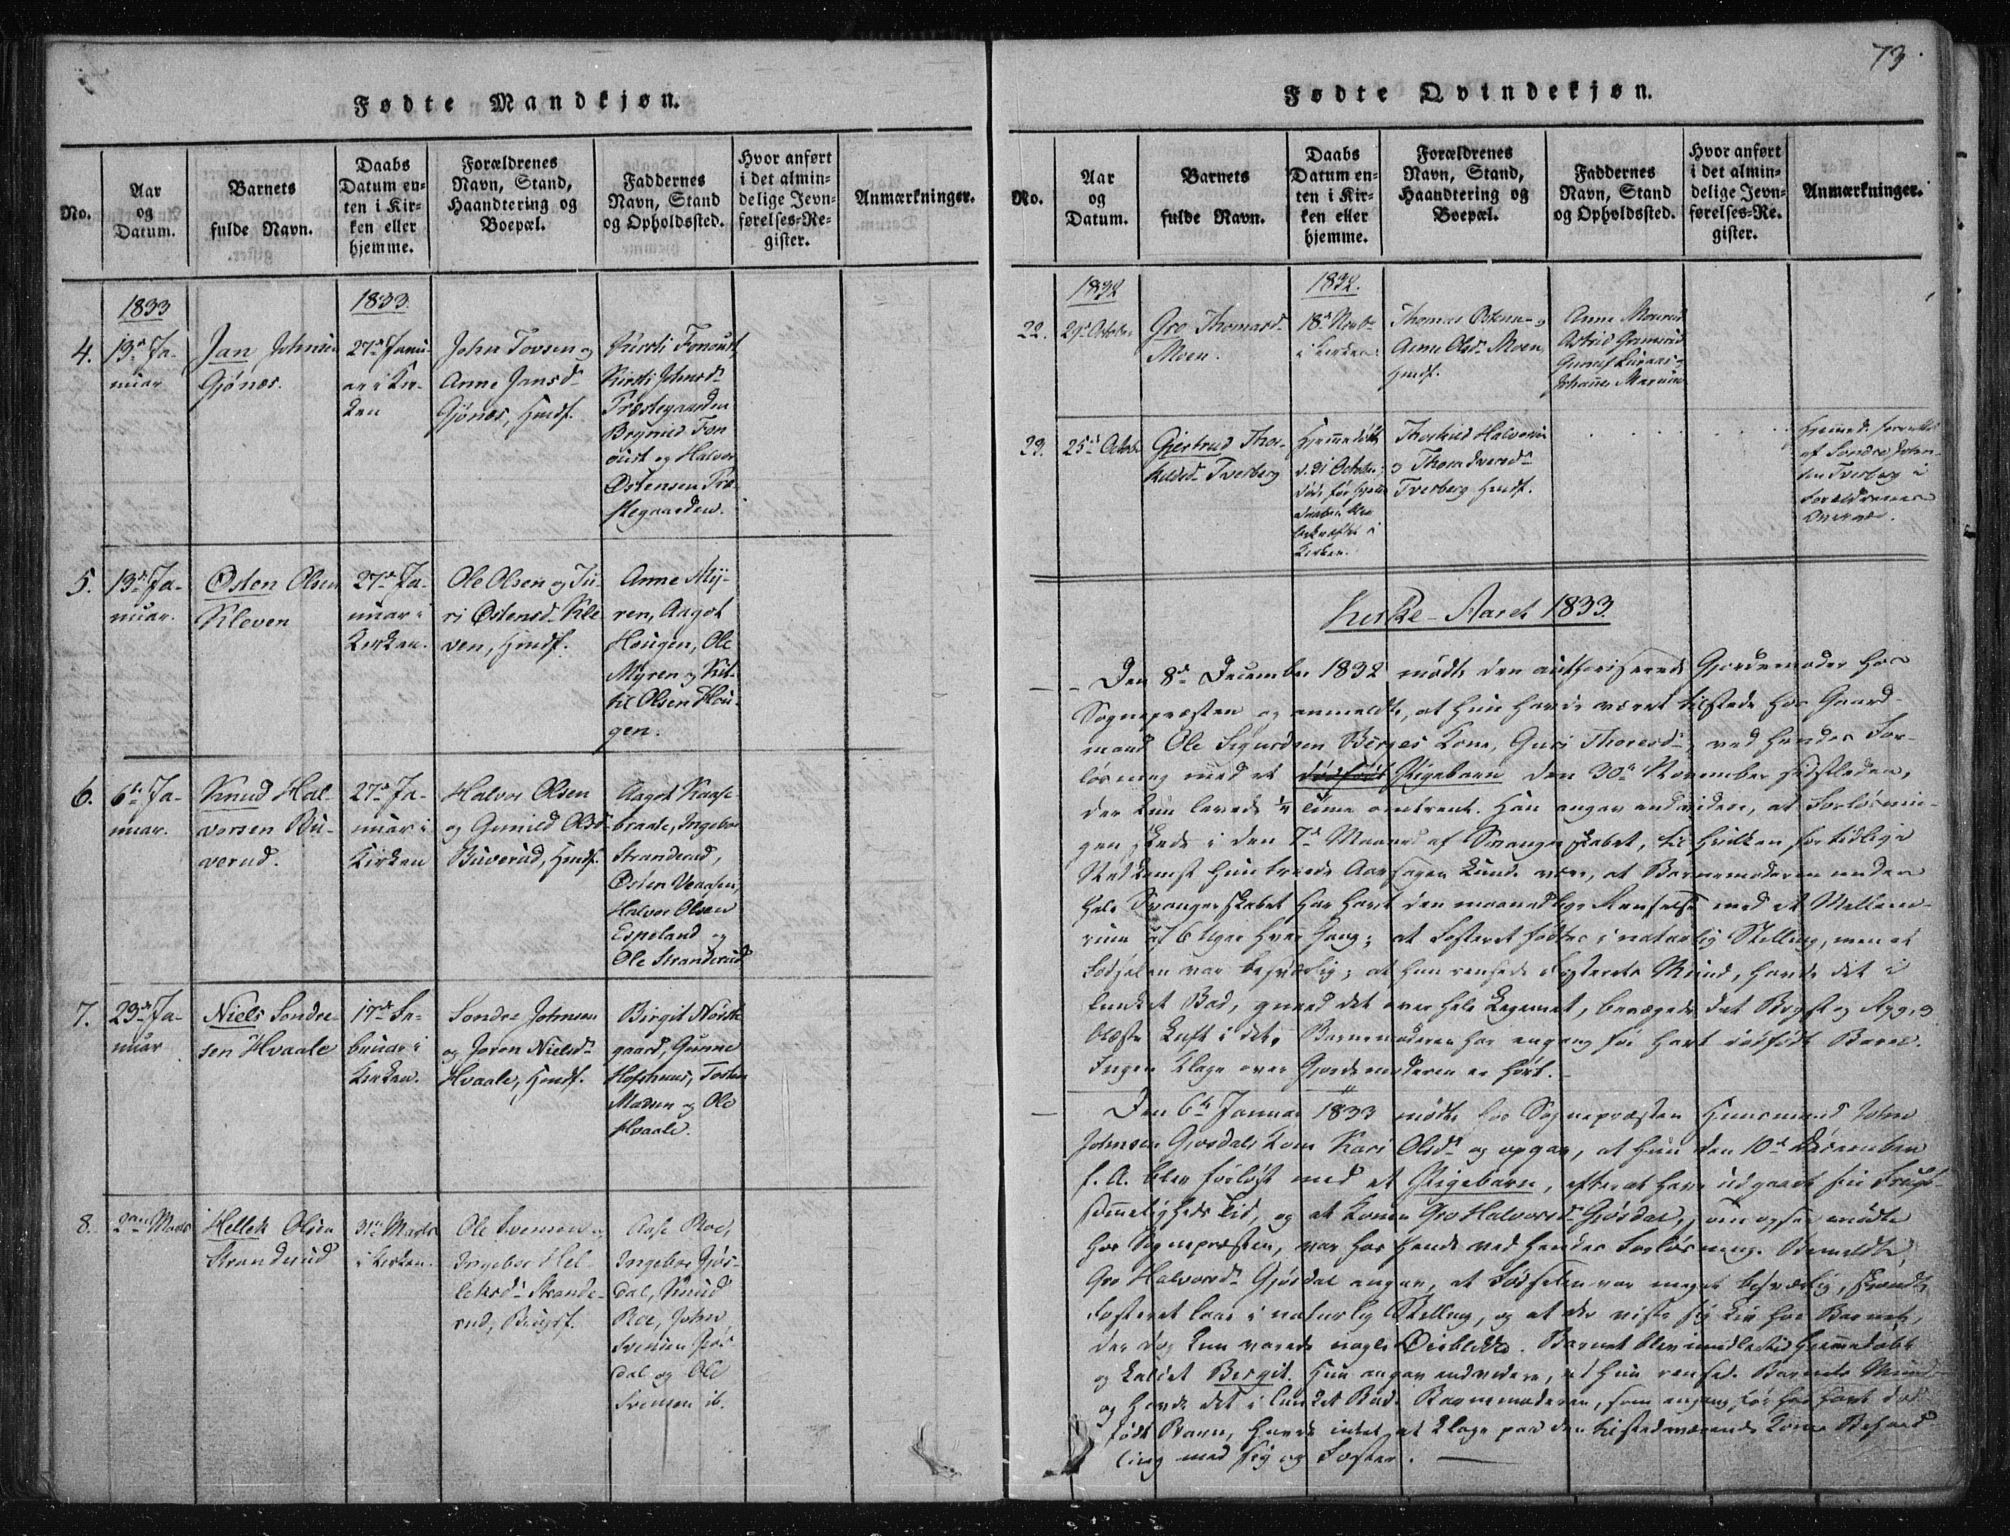 73.
Fødte Mandkjøn.
No.
Aar
og
Datum.
Barnets
fulde Navn.
Daabs
Datum en-
ten i Kir-
ken eller
hjemme.
Forældrenes
Navn, Stand,
Haandtering og
Boepæl.
Faddernes
Navn, Stand
og Opholdssted.
Hvor anført
i det almin-
delige Jevn-
førelses-Re-
gister.
Anmærkninger.
1833
1833.
4.
13de Ja-
nuar
Jan Johnsen
Gjønæs.
27de Janu-
ar i Kir-
ken
John Tovsen og
Anne Jansd.
Gjønæs, Hmdf.
Kirsti Fonoust,
Kirsti Johnsd.
Præstegaarden
Brynild Fon
oust og Halvor
Østensen Præ-
stegaarden.
5.
13de Ja-
nuar.
Østen Olsen
Kleven
27de Ja-
nuar i
Kirken.
Ole Olsen og Ju-
ri Østensd. Kle-
ven, Hmdf.
Anne My-
ren, Aagot
Hougen, Ole
Myren og Kit-
til Olsen Hou-
gen.
6.
6te Ja-
nuar.
Knud Hal-
vorsen Bu-
verud.
27de Ja-
nuar i
Kirken
Halvor Olsen
og Gunild Olsd.
Buverud, Hmdf.
Aagot Kaase-
braate, Ingebor
Stranderud,
Østen Vraasen,
Halvor Olsen
Espeland og
Ole Stranderud
7.
23de Ja-
nuar
Niels Sondre-
sen Hvaale
17de Fe-
bruar i
Kirken.
Sondre Johnsen
og Joron Nielsd.
Hvaale, Hmdf.
Birgit Norste-
gaard, Gunne
Hofshuus, Tosten
Moen og Ole
Hvaale.
8.
2den Marts
Hellek Olsen
Stranderud
31te Marts
i Kirken.
Ole Svensen og
Ingebor Hel-
leksd. Strande-
rud, Bugsf.
Aase Roe,
Ingebor Gjøs-
dal, Knud
Roe, John
Svensen Gjøs
dal og Ole
Svensen ib.
Fødte Qvindekjøn.
No.
Aar
og
Datum.
Barnets
fulde Navn.
Daabs
Datum en-
ten i Kir-
ken eller
hjemme.
Forældrenes
Navn, Stand,
Haandtering og
Boepæl.
Faddernes
Navn, Stand
og Opholdssted.
Hvor anført
i det almin-
delige Jevn-
førelses-Re-
gister.
Anmærkninger.
1832
1832.
22.
29de October
Gro Thomasd.
Moen.
18de Novbr.
i Kirken.
Thomas Østensen og
Anne Olsd. Moen
Hmdf.
Anne
Astrid
Johannes
23.
25de October
Gjertrud Thor-
kildsd. Tverberg
Hjemmedøbt
d. 31 October,
døde før
Kirken.
Thorkild Halvorsen
og Thore
Tverberg Hmdf.
Hjemmed. forrettet
af Sondre John-
sen Tverberg i
Forældrenes
Nærvær.
Kirke-Aaret 1833.
Den 8de December 1832 mødte den authoriserede Gjordemoder hos
Sognepræsten og anmeldte, at hun havde været tilstede hos Gaard-
mand Ole Sigurdsen Berges Kone, Guri Thoresd., ved hendes For-
løsning med et dødfødt Pigebarn den 30te November sidstleden,
der kun levede ¼ Time omtrent. Hun angav endvidere, at Forløsnin-
gen skede i den 7de Maaned af Svangerskabet, til hvilken for tidlige
Nedkomst hun troede Aarsagen kunde være, at Barnemoderen under
hele Svangerskabet har havt den maanedlige Renselse med et Mellem-
rum af 6 Uger hver Gang; at Fosteret fødtes i naturlig Stilling, men at
Fødselen var besværlig; at hun rensede Fosterets Mund, havde det i
lunket Bad, gneed det over hele Legemet, bevægede det Bryst og Ryg, og
blæste Luft i det. Barnemoderen har engang før havt dødfødt Barn.
Ingen Klage over Gjordemoderen er hørt.
Den 6te Januar 1833 mødte hos Sognepræsten Huusmand John
Johnsen Gjøsdals Kone Kari Olsd. og opgav, at hun den 10de December
f. A. blev forløst med et Pigebarn, efter at have udgaaet sin Frugt-
sommeligheds Tid, og at Konen Gro Halvorsd. Gjøsdal, som ogsaa mødte
hos Sognepræsten, var hos hende ved hendes Forløsning. Bemeldte
Gro Halvorsd. Gjøsdal angav, at Fødselen var meget besværlig, skjøndt
Fosteret laae i naturlig Stilling, og at der viste sig Liv hos Barnet,
der dog kun varede nogle Øieblikke. Barnet blev imidlertid hjemmedøbt
og kaldet Bergit. Hun angav endvidere, at hun rensede Barnets Mund
og havde det i lunket Bad. Barnemoderen, som engang før har havt død-
født Barn, havde intet at klage paa den tilstedeværende Kones Behand-
ling med sig og Foster.